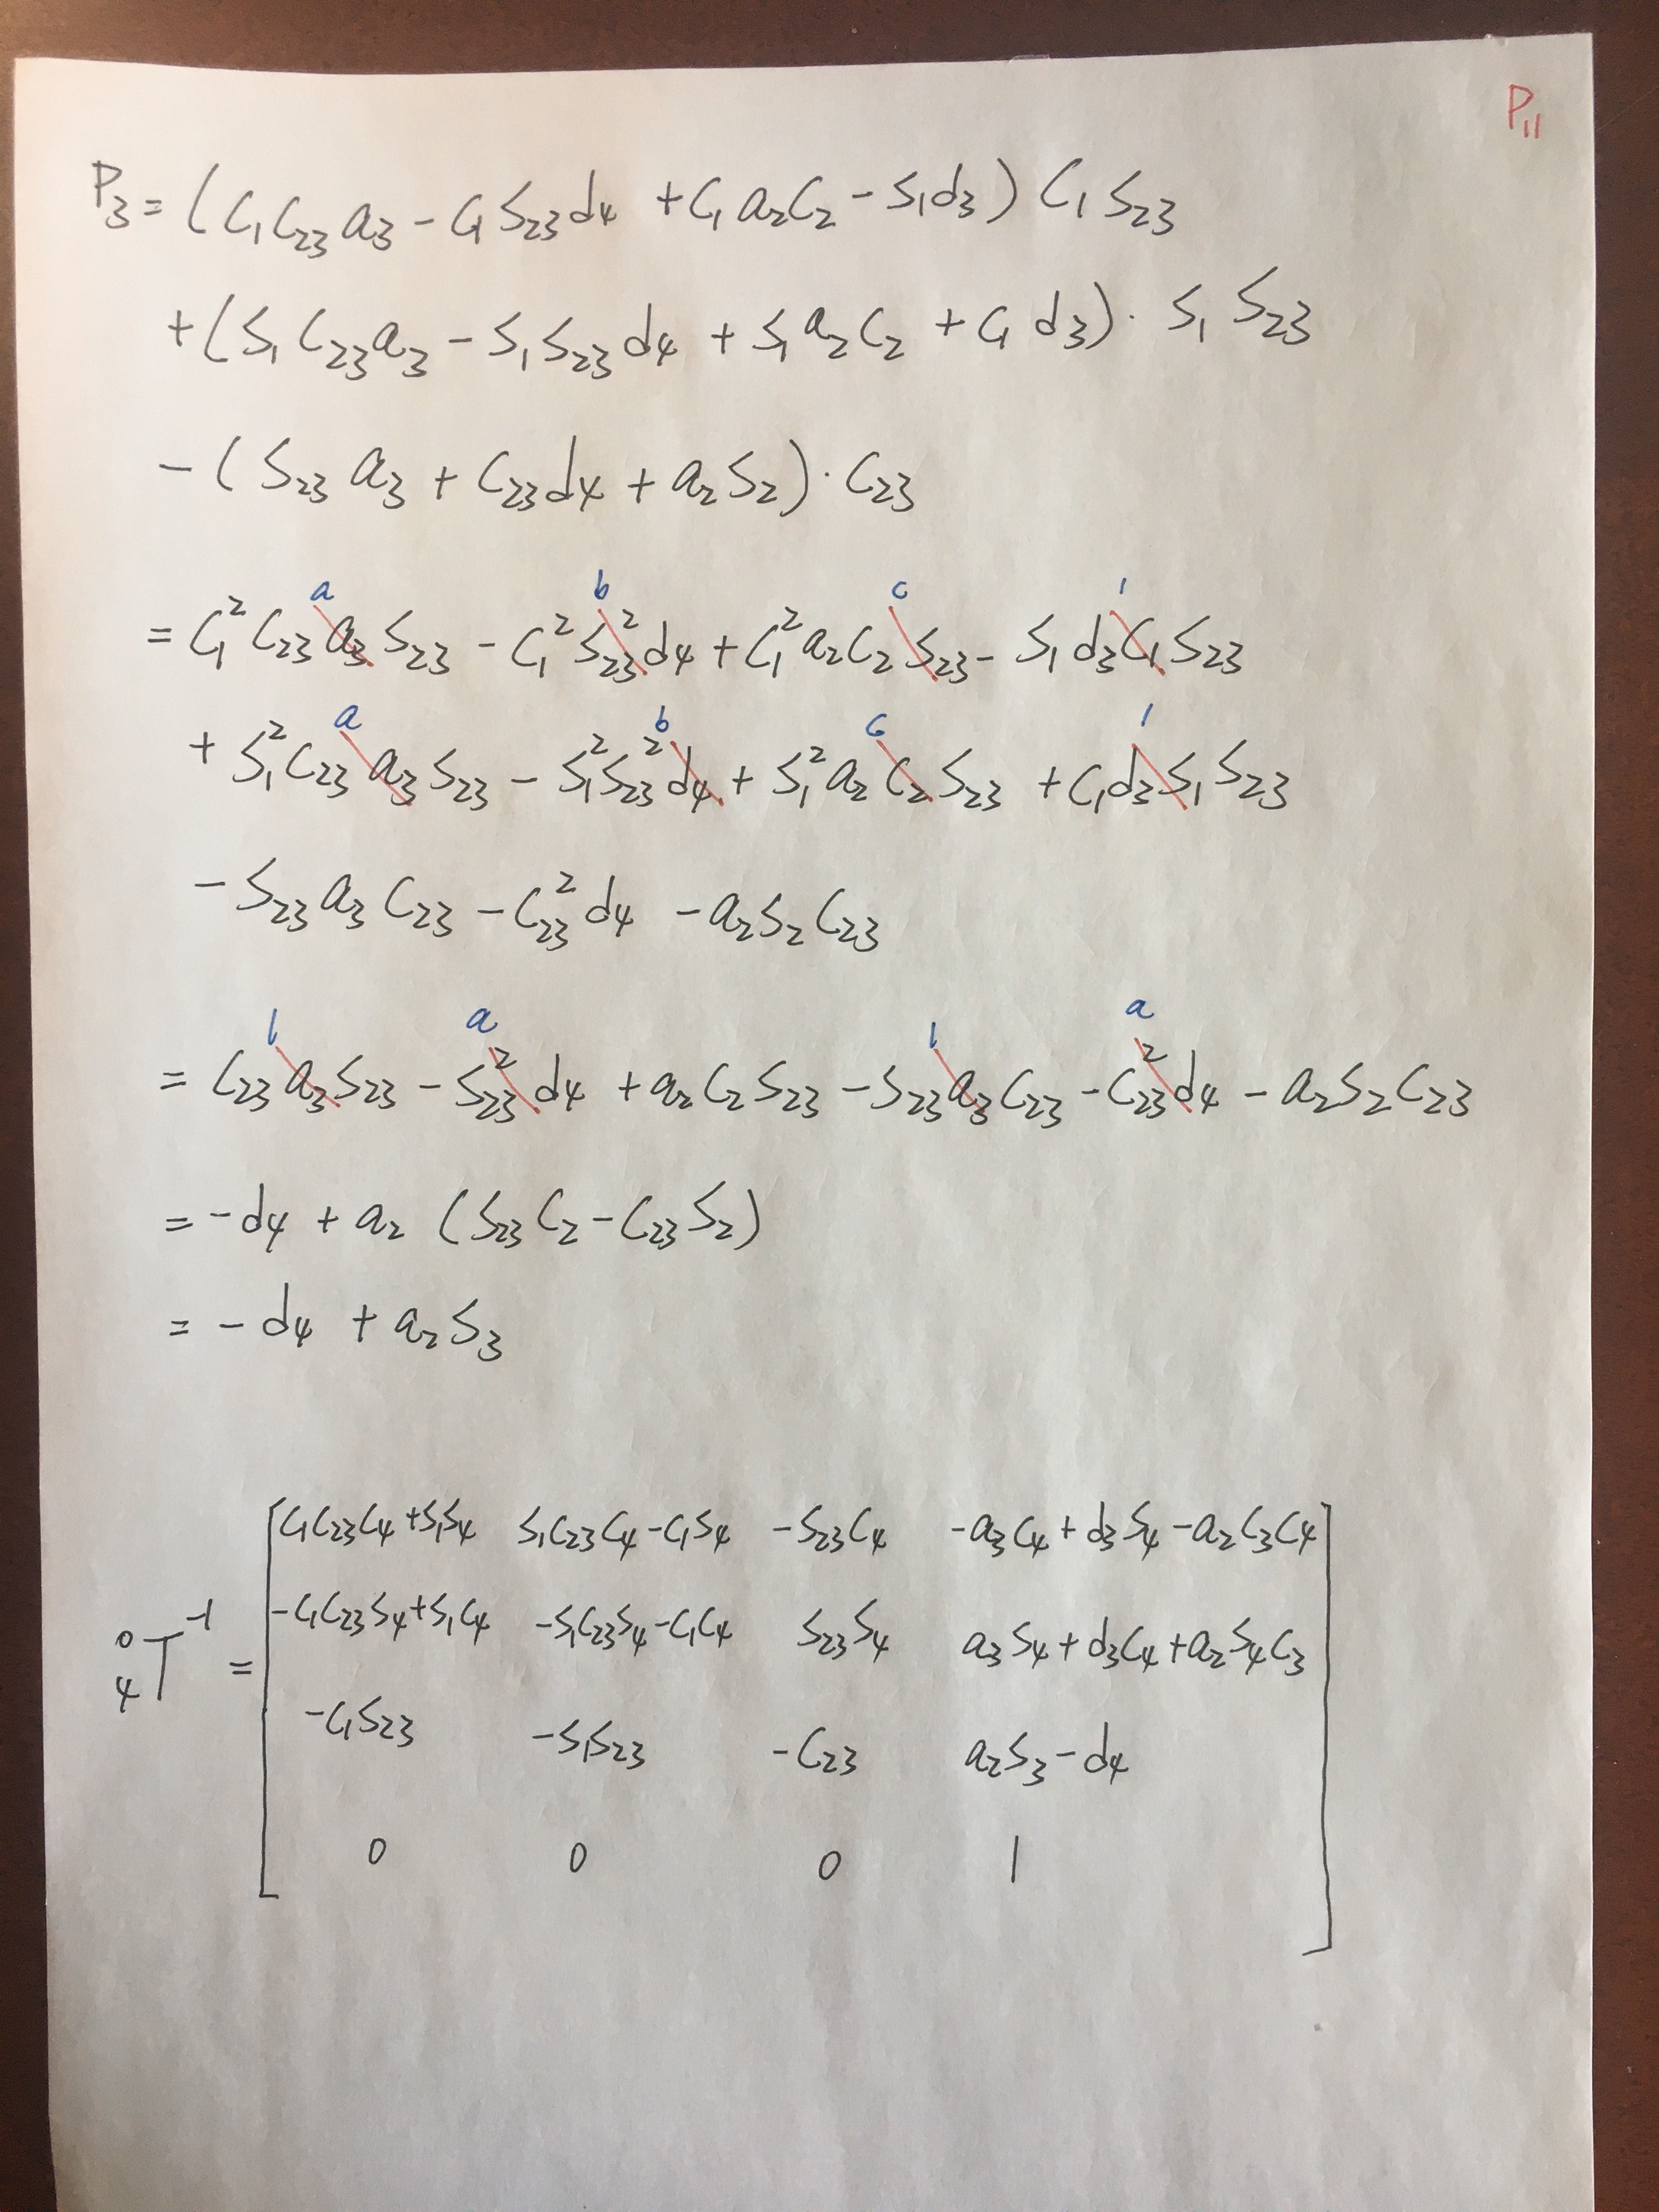 P₁₁
P₃ = (C₁C₂₃a₃ - C₁S₂₃d₄ + C₁a₂C₂ - S₁d₃) C₁S₂₃
+ (S₁C₂₃a₃ - S₁S₂₃d₄ + S₁a₂C₂ + C₁d₃) · S₁S₂₃
- (S₂₃a₃ + C₂₃d₄ + a₂S₂) · C₂₃
a b c 1
= C₁²C₂₃a₃S₂₃ - C₁²S₂₃²d₄ + C₁²a₂C₂S₂₃ - S₁d₃C₁S₂₃
a b c 1
+ S₁²C₂₃a₃S₂₃ - S₁²S₂₃²d₄ + S₁²a₂C₂S₂₃ + C₁d₃S₁S₂₃
- S₂₃a₃C₂₃ - C₂₃²d₄ - a₂S₂C₂₃
1 a 1 a
= C₂₃a₃S₂₃ - S₂₃²d₄ + a₂C₂S₂₃ - S₂₃a₃C₂₃ - C₂₃²d₄ - a₂S₂C₂₃
= -d₄ + a₂ (S₂₃C₂ - C₂₃S₂)
= -d₄ + a₂S₃
C₁C₂₃C₄+S₁S₄ S₁C₂₃C₄-C₁S₄ -S₂₃C₄ -a₃C₄+d₃S₄-a₂C₃C₄
⁰₄T⁻¹ = -C₁C₂₃S₄+S₁C₄ -S₁C₂₃S₄-C₁C₄ S₂₃S₄ a₃S₄+d₃C₄+a₂S₄C₃
-C₁S₂₃ -S₁S₂₃ -C₂₃ a₂S₃-d₄
0 0 0 1